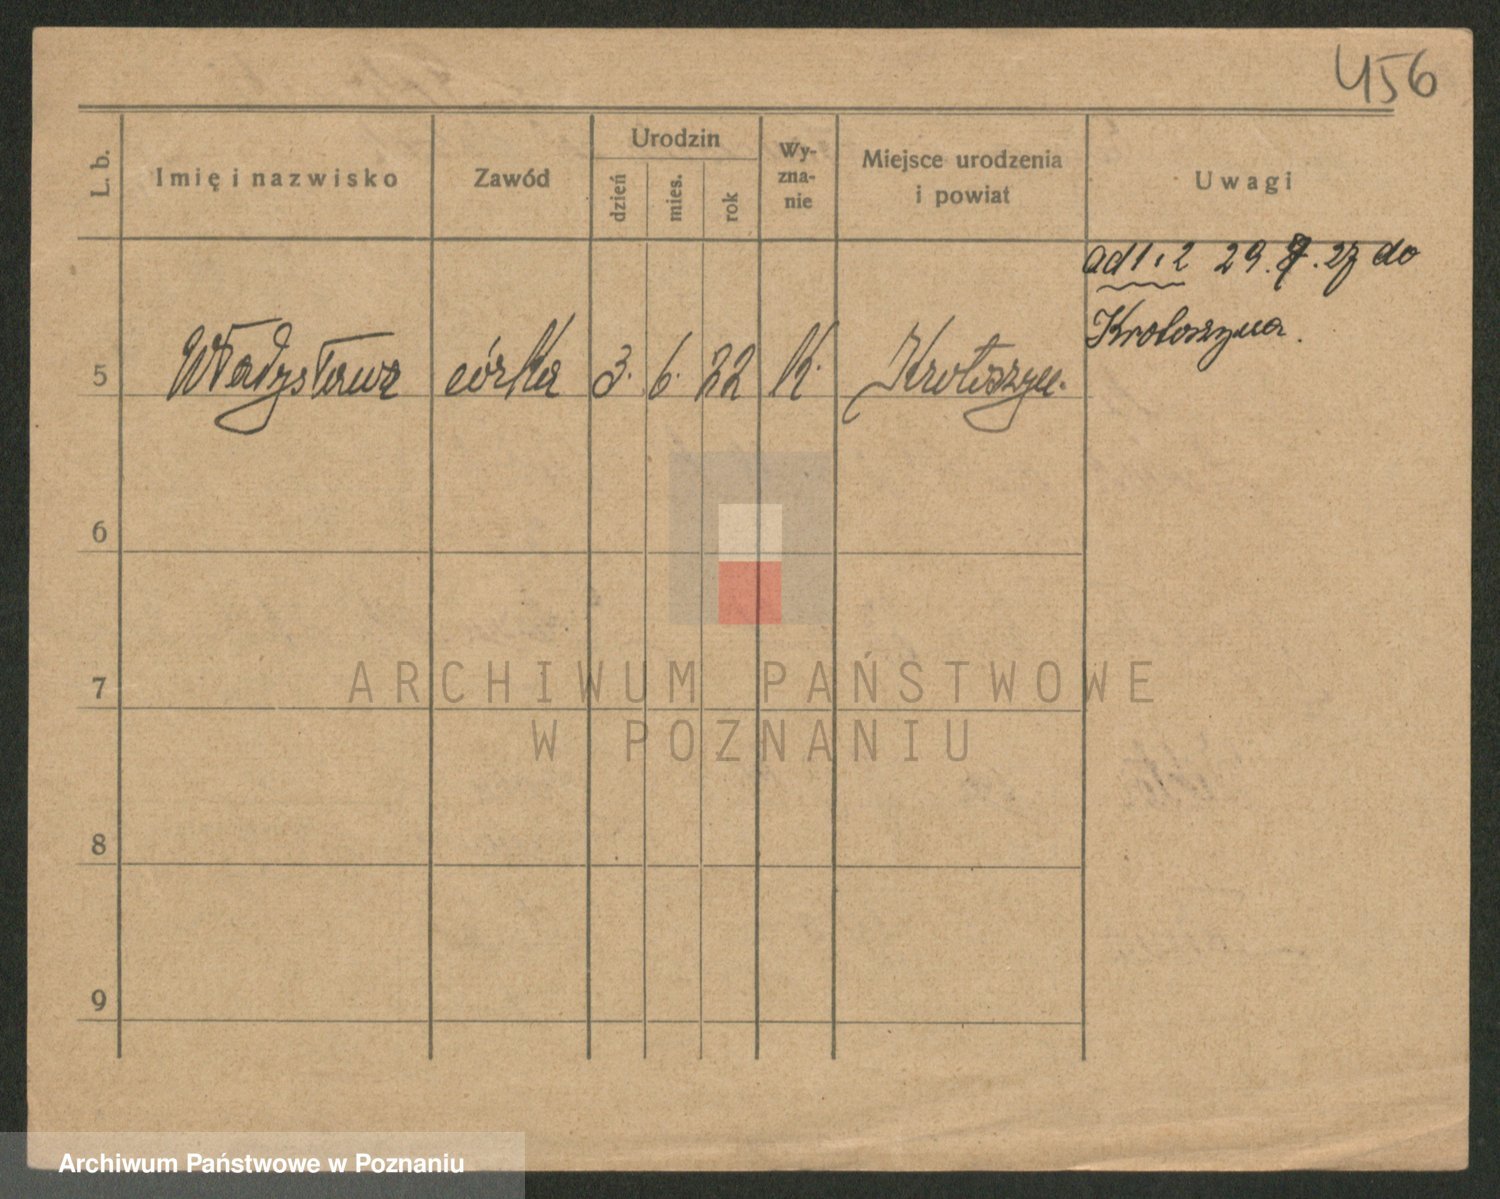 456
L. b.
Imię i nazwisko
Zawód
Urodzin
dzień
mies.
rok
Wy-
zna-
nie
Miejsce urodzenia
i powiat
Uwagi
ad 1 i 2 29. . 27 do
Krotoszyna.
5 Władysława córka 3. 6. 22 K. Krotoszyn.
6
7
8
9
ARCHIWUM PAŃSTWOWE
W POZNANIU
Archiwum Państwowe w Poznaniu